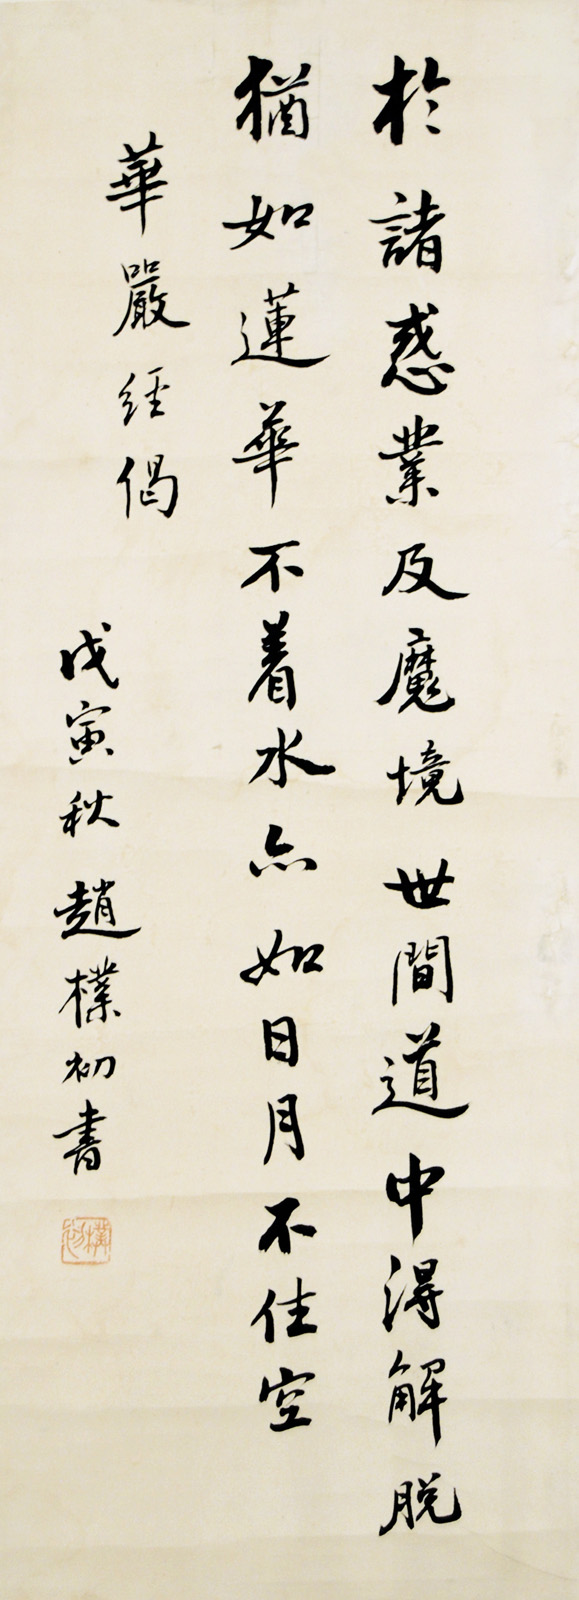 於諸惑業及魔境世間道中得解脫
猶如蓮華不着水亦如日月不住空
華嚴經偈
戊寅秋趙樸初書
樸初